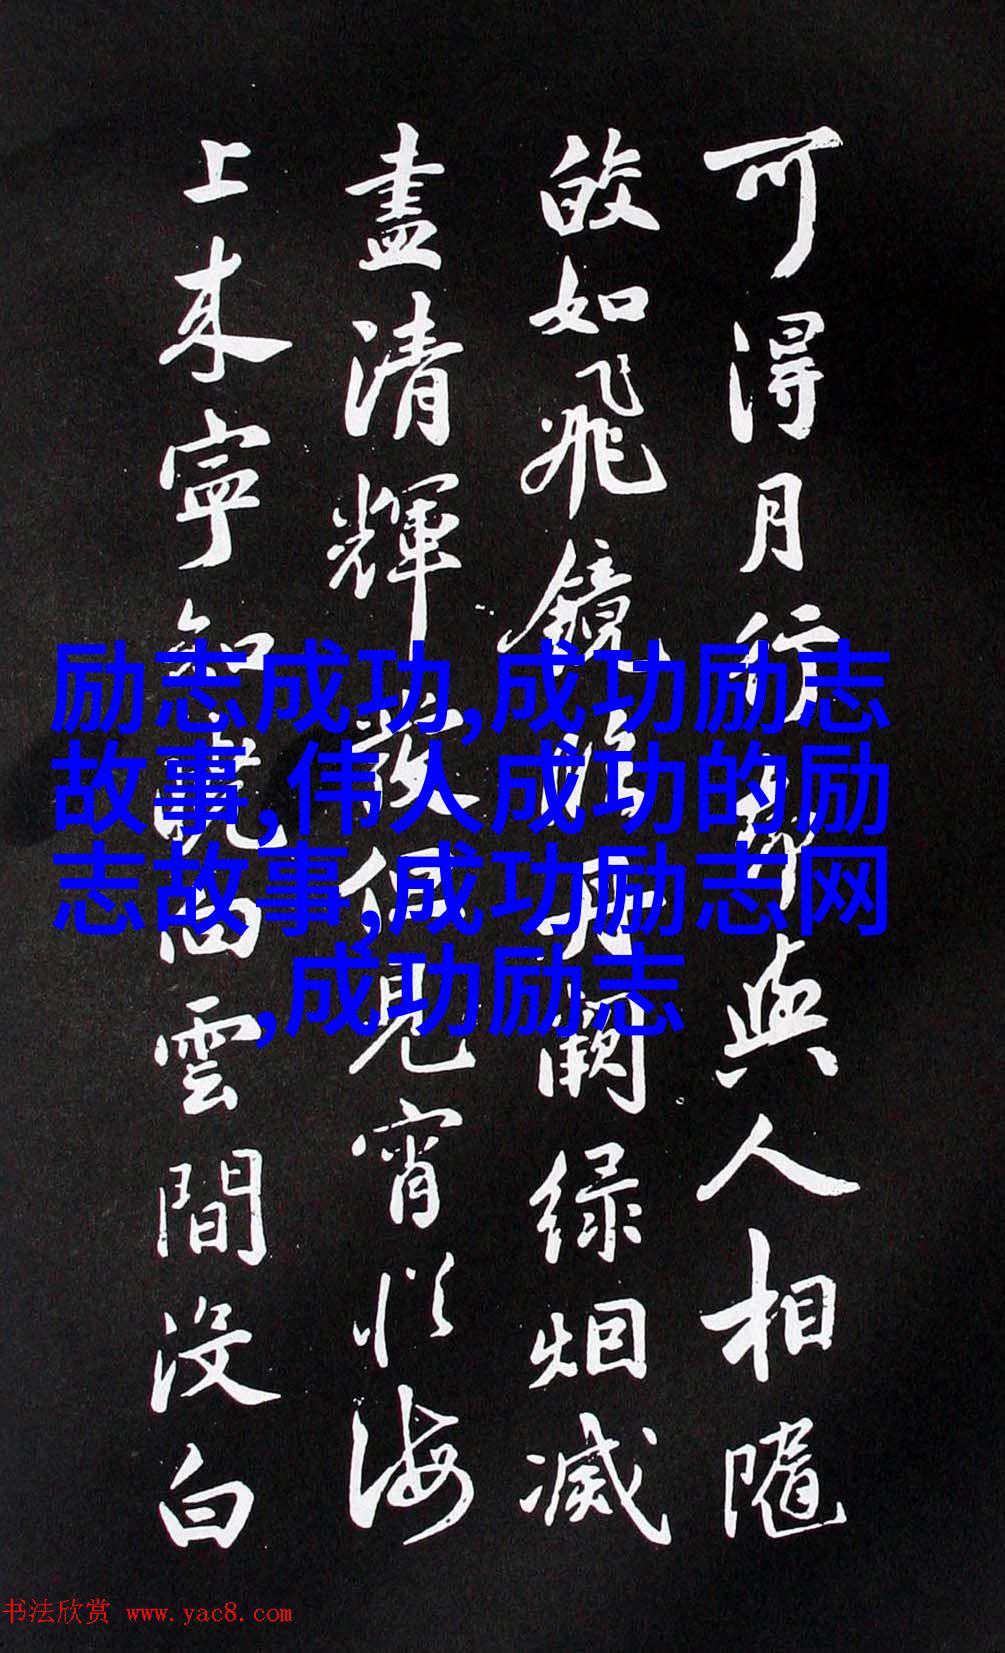 可得月行却與人相隨
皎如飛鏡臨丹闕緑烟滅
盡清輝發但見宵從海
上来寧知曉向雲間没白
励志成功,成功励志
故事,伟人成功的励
志故事,成功励志网
,成功励志
书法欣赏 www.yac8.com